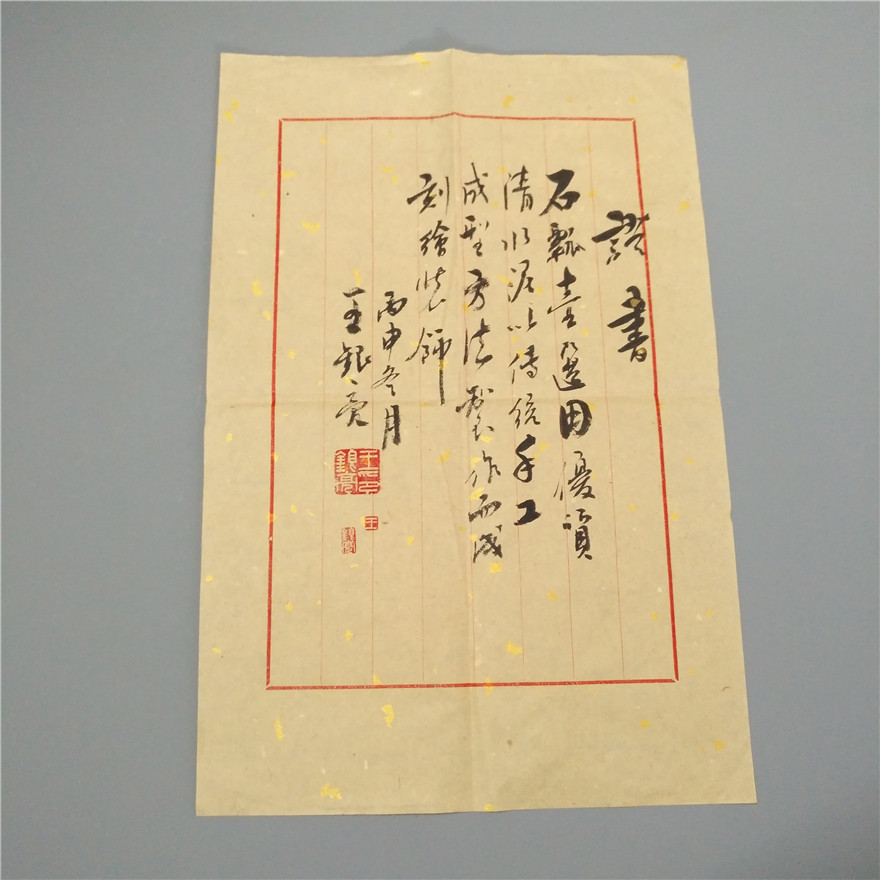 證書
石瓢壺選用優質
清水泥以傳統手工
成型方法製作而成
刻繪裝飾
丙申冬月
王銀亮
王